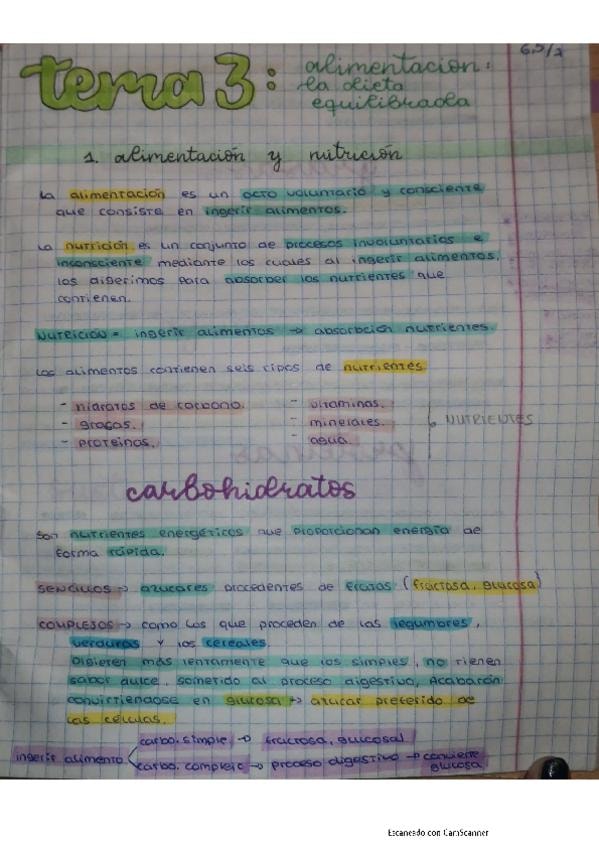 tema 3:
alimentación:
la dieta
equilibrada
1. alimentación y nutrición
La alimentación es un acto voluntario y consciente
que consiste en ingerir alimentos.
La nutrición es un conjunto de procesos involuntarios e
inconsciente mediante los cuales al ingerir alimentos,
los digerimos para absorber los nutrientes que
contienen.
NUTRICIÓN = ingerir alimentos → absorbción nutrientes.
Los alimentos contienen seis tipos de nutrientes
- hidratos de carbono.
- grasas.
- proteínas.
- vitaminas.
- minerales.
- agua.
NUTRIENTES
carbohidratos
Son nutrientes energéticos que proporcionan energía de
forma rápida.
SENCILLOS → azúcares procedentes de frutas (fructosa, glucosa)
COMPLEJOS → como los que proceden de las legumbres,
verduras y los cereales.
Digieren más lentamente que los simples, no tienen
sabor dulce, sometido al proceso digestivo, Acabarán
convirtiendose en glucosa → azúcar preferido de
las células.
ingerir alimento
carbo. simple → fructosa, glucosa
carbo. complejo → proceso digestivo → convierte
glucosa
Escaneado con CamScanner